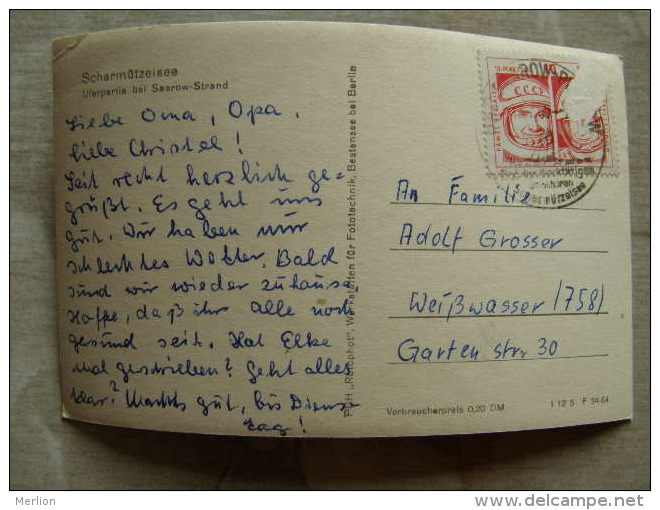 Scharmützelsee
Uferpartie bei Saarow-Strand
Liebe Oma, Opa,
liebe Christel!
Seit recht herzlich ge=
grüßt. Es geht uns
gut. Wir haben nur
schlechtes Wetter. Bald
sind wir wieder zuhause
Hoffe, daß ihr alle noch
gesund seit. Hat Elke
mal geschrieben? Geht alles
klar? Machts gut, bis Diens-
tag!
PGH „Rotophot", Werkstätten für Fototechnik, Bestensee bei Berlin
CCCP
Scharmützelsee
An Familie
Adolf Grosser
Weißwasser (758)
Gartenstr. 30
Verbraucherpreis 0,20 DM
I 12 5 F 34-64
Merlion
www.delcampe.net